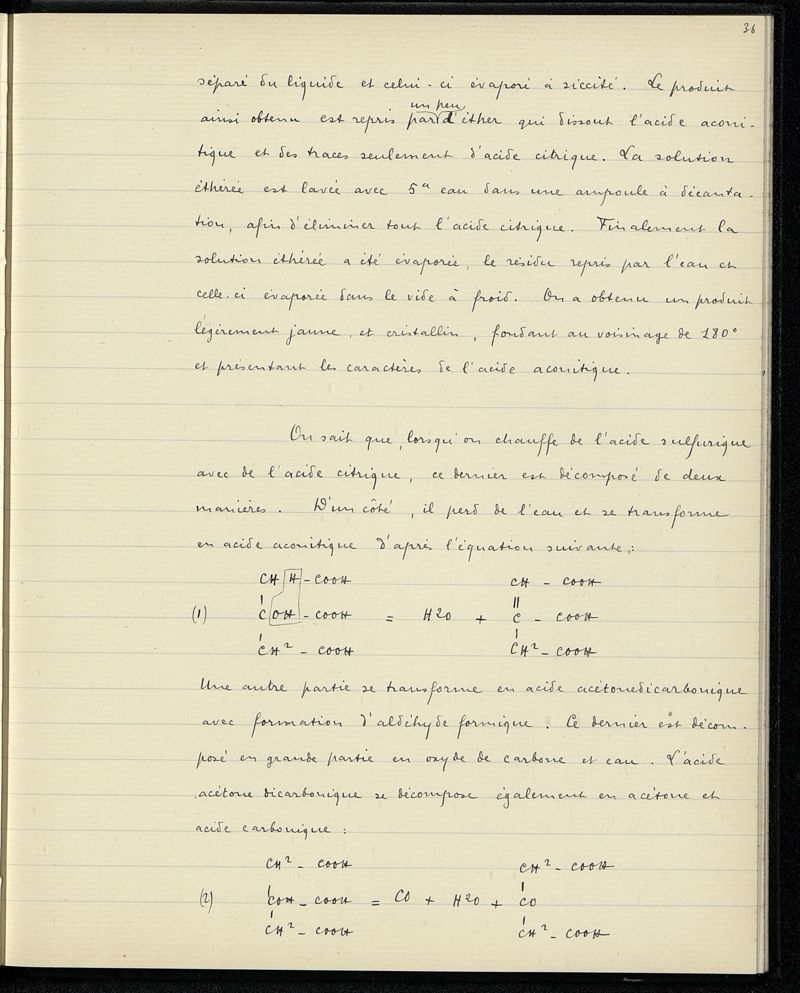 36
séparé du liquide et celui-ci évaporé à siccité. Le produit
un peu
ainsi obtenu est repris par d'éther qui dissout l'acide aconi-
tique et des traces seulement d'acide citrique. La solution
éthérée est lavée avec 5 eau dans une ampoule à décanta-
tion, afin d'éliminer tout l'acide citrique. Finalement la
solution éthérée a été évaporée, le résidu repris par l'eau et
celle-ci évaporée dans le vide à froid. On a obtenu un produit
légèrement jaune, et cristallin, fondant au voisinage de 180°
et présentant les caractères de l'acide aconitique.
On sait que, lorsqu'on chauffe de l'acide sulfurique
avec de l'acide citrique, ce dernier est décomposé de deux
manières. D'un côté, il perd de l'eau et se transforme
en acide aconitique d'après l'équation suivante:
CH H - COOH CH - COOH
(1) C OH - COOH = H2O + C - COOH
CH² - COOH CH² - COOH
Une autre partie se transforme en acide acétonedicarbonique
avec formation d'aldéhyde formique. Ce dernier est décom-
posé en grande partie en oxyde de carbone et eau. L'acide
acétone dicarbonique se décompose également en acétone et
acide carbonique :
CH² - COOH CH² - COOH
(2) COH - COOH = CO + H2O + CO
CH² - COOH CH² - COOH